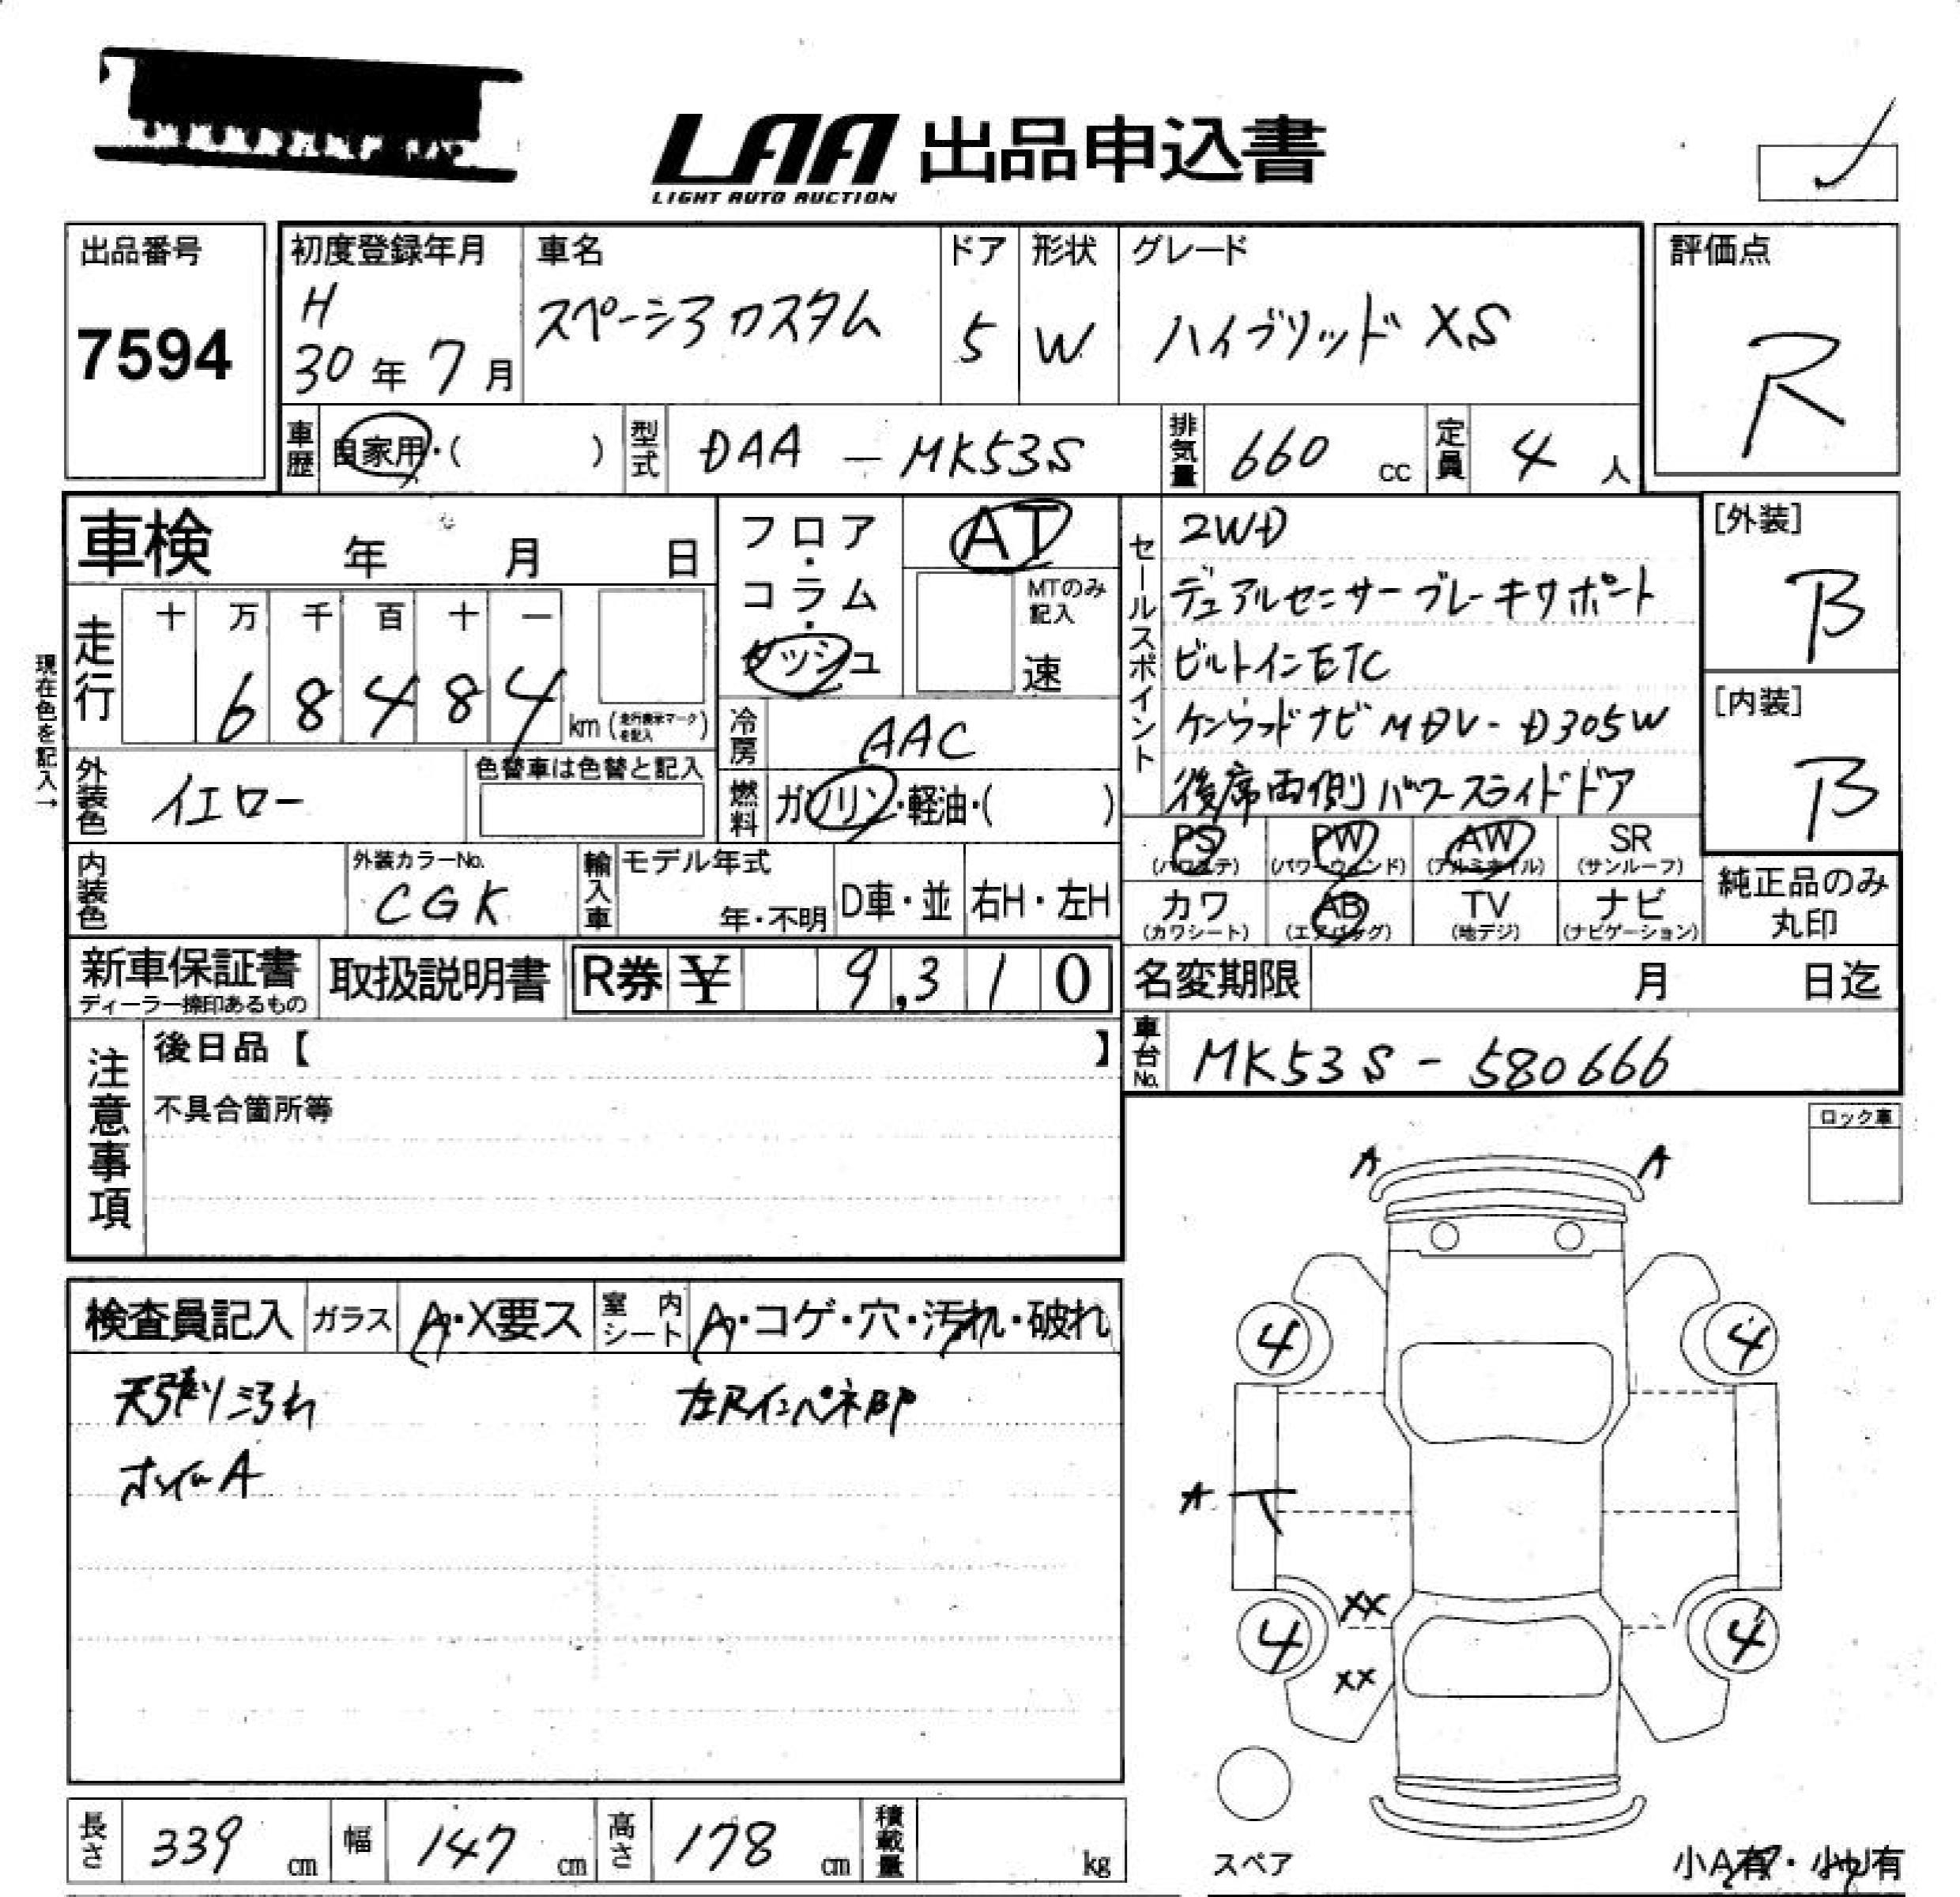 LAA 出品申込書
LIGHT AUTO AUCTION
出品番号
7594
初度登録年月
H
30年 7月
車名
スペーシア カスタム
ドア
5
形状
W
グレード
ハイブリッド XS
評価点
R
車歴
自家用・( )
型式
DAA - MK53S
排気量
660 cc
定員
4 人
車検 年 月 日
フロア・コラム・ダッシュ
AT
MTのみ記入
速
セールスポイント
2WD
デュアルセンサーブレーキサポート
ビルトインETC
ケンウッドナビ MDV-D305W
後席両側パワースライドドア
[外装]
B
[内装]
B
現在色を記入→
走行
十 万 千 百 十 一
6 8 4 8 4
km (走行表示マークを記入)
冷房
AAC
外装色
イエロー
色替車は色替と記入
燃料
ガソリン・軽油・( )
PS
(パワステ)
PW
(パワーウィンド)
AW
(アルミホイル)
SR
(サンルーフ)
カワ
(カワシート)
AB
(エアバッグ)
TV
(地デジ)
ナビ
(ナビゲーション)
純正品のみ
丸印
内装色
外装カラーNo.
CGK
輸入車
モデル年式
年・不明
D車・並
右H・左H
新車保証書
ディーラー捺印あるもの
取扱説明書
R券 ¥ 9,310
名変期限 月 日迄
車台No.
MK53S - 580666
注意事項
後日品【 】
不具合箇所等
ロック車
A A
4 4
A
XX
4 4
XX
スペア
小A有・小U有
検査員記入
ガラス
A・X要ス
室内シート
A・コゲ・穴・汚れ・破れ
天張り汚れ
左Rインパネ凹
ホイルA
長さ
339 cm
幅
147 cm
高さ
178 cm
積載量
kg